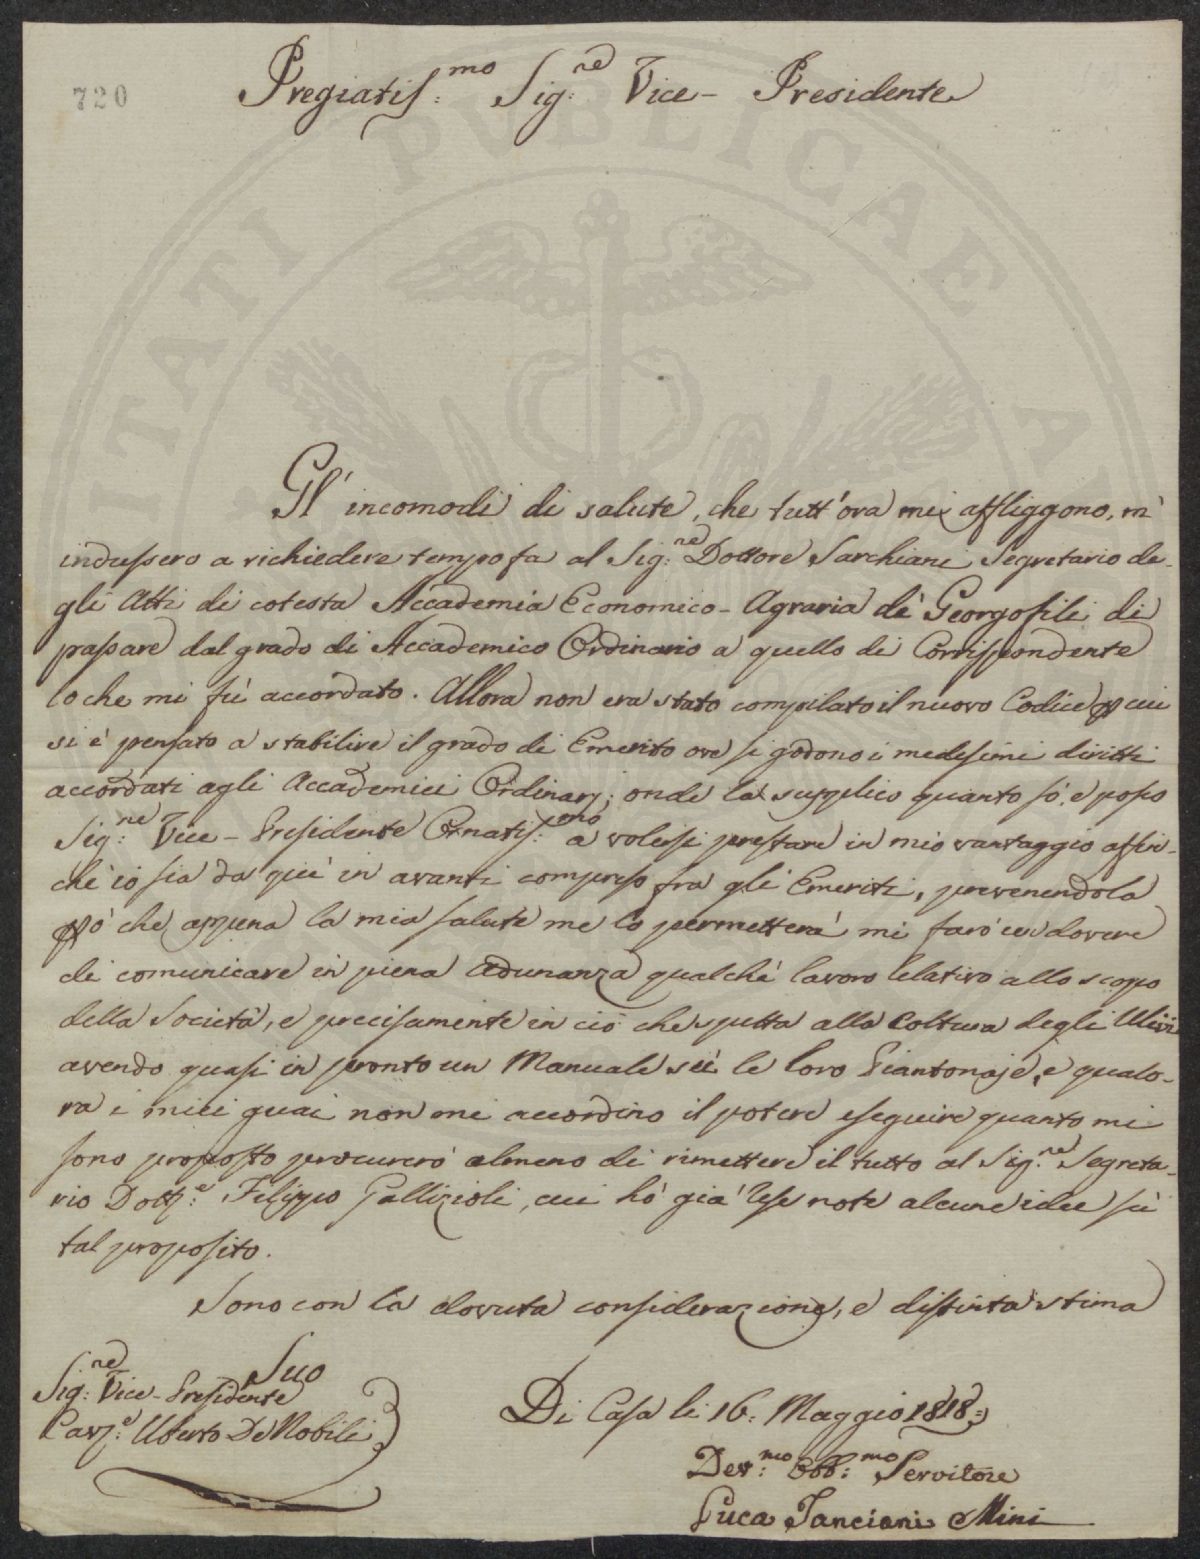 720
Pregiatiss:mo Sig:re Vice-Presidente
Gl'incomodi di salute, che tutt'ora mi affliggono, m'
indussero a richiedere tempo fa al Sig:re Dottore Sarchiani Segretario de-
gli Atti di cotesta Accademia Economico-Agraria de' Georgofili di
passare dal grado di Accademico Ordinario a quello di Corrispondente
loche mi fù accordato. Allora non era stato compilato il nuovo Codice p cui
si è pensato a stabilire il grado di Emerito ove si godono i medesimi diritti
accordati agli Accademici Ordinarj; onde la supplico quanto sò, e posso
Sig:re Vice-Presidente Ornatiss:mo a volersi prestare in mio vantaggio affin-
chè io sia da quì in avanti compreso fra gli Emeriti, prevenendola
pò che appena la mia salute me lo permetterà mi farò un dovere
di comunicare in piena Adunanza qualchè lavoro relativo allo scopo
della Società, e precisamente in ciò che spetta alla Coltura degli Ulivi
avendo quasi in pronto un Manuale sù le loro Piantonaje, e qualo-
ra i miei guai non mi accordino il potere eseguire quanto mi
sono proposto procurerò almeno di rimettere il tutto al Sig:re Segreta-
rio Dott:e Filippo Gallizioli, cui hò già rese note alcune idee sù
tal proposito.
Sono con la dovuta considerazione, e distinta stima
Suo
Sig:re Vice-Presidente
Cav:e Uberto De Nobili
Di Casa li 16: Maggio 1818:
Dev:mo Obb:mo Servitore
Luca Tanciani Mini
PUBLICAE
ITATI